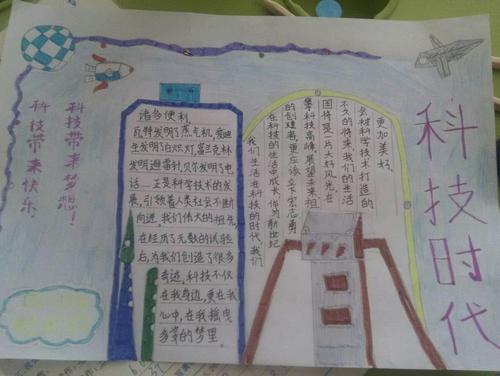 科技时代
科技带来梦想!
科技带来快乐.
诸多便利,
瓦特发明了蒸气机,爱迪
生发明了白炽灯,富兰克林
发明避雷针,贝尔发明了电
话……正是科学技术的发
展,引领着人类社会不断
向进,我们伟大的祖先
在经历了无数的试验
后,为我们创造了很多
奇迹,科技不仅
在我身边,更在我
心中,在我摇曳
多姿的梦里.
我们生活在科技的时代,我们
在科技的生活中成长,作为新世纪
的创建者,更应该立宏志勇
攀科技高峰,展望未来祖
国将是一片大好风光,在
不久的将来,我们的生活
会被科学技术打造的
更加美好.